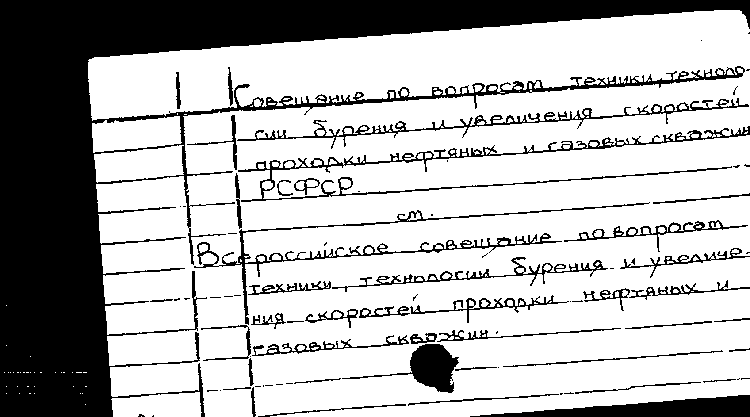 Совещание по вопросам техники, техноло-
гии бурения и увеличения скоростей
проходки нефтяных и газовых скважин
РСФСР.
см.
Всероссийское совещание по вопросам
техники, технологии бурения и увеличе-
ния скоростей проходки нефтяных и
газовых скважин.